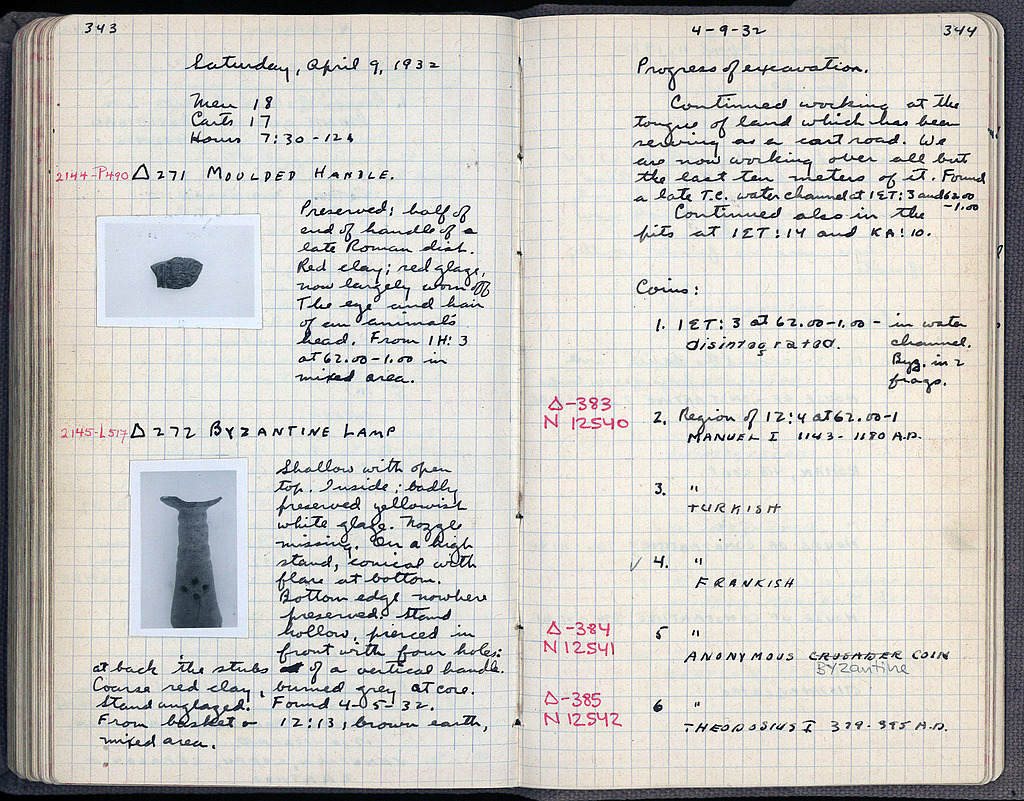 343
Saturday, April 9, 1932
Men 18
Carts 17
Hours 7:30-12
2144-P490 Δ271 MOULDED HANDLE.
Preserved: half of
end of handle of a
late Roman dish.
Red clay; red glaze,
now largely worn off
The eye and hair
of an animal's
head. From 1H:3
at 62.00-1.00 in
mixed area.
2145-L517 Δ272 BYZANTINE LAMP
Shallow with open
top. Inside; badly
preserved yellowish
white glaze. Nozzle
missing. On a high
stand, conical with
flare at bottom.
Bottom edge nowhere
preserved. Stand
hollow, pierced in
front with four holes:
at back the stubs of a vertical handle.
Coarse red clay, burned grey at core.
Stand unglazed. Found 4-5-32.
From basket 12:13, brown earth,
mixed area.
4-9-32
344
Progress of excavation.
Continued working at the
tongue of land which has been
serving as a cart road. We
are now working over all but
the last ten meters of it. Found
a late T.C. water channel at 1ET:3 and 62.00
-1.00
Continued also in the
pits at 1ET:14 and KA:10.
Coins:
1. 1ET:3 at 62.00-1.00 - in water
disintegrated. channel.
Byz. in 2
frags.
Δ-383
N 12540
2. Region of 12:4 at 62.00-1
MANUEL I 1143-1180 A.D.
3. "
TURKISH
✓ 4. "
FRANKISH
Δ-384
N 12541
5 "
ANONYMOUS CRUSADER COIN
BYZantine
Δ-385
N 12542
6 "
THEODOSIUS I 379-395 A.D.